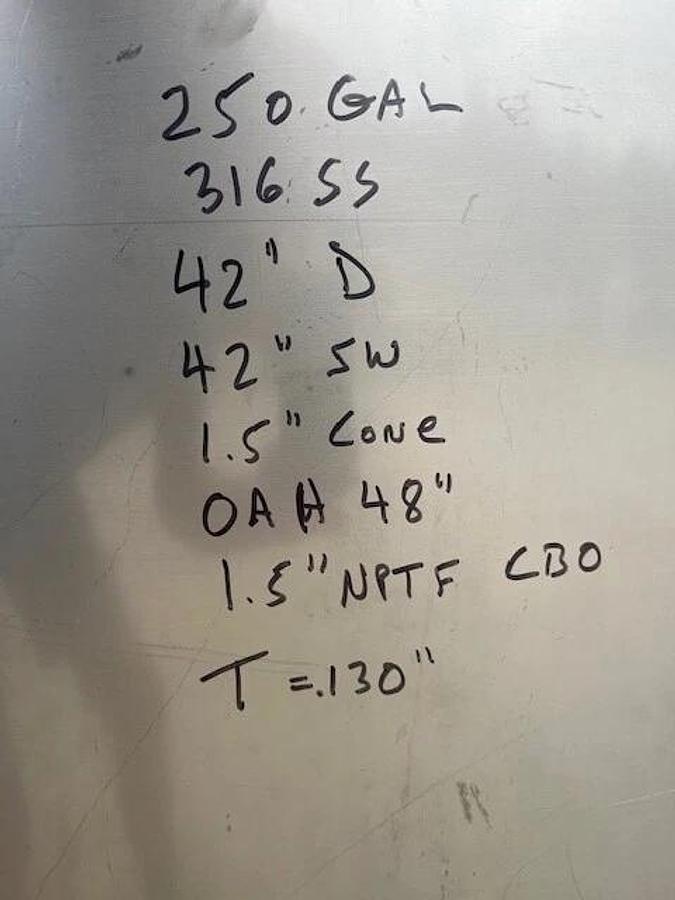 250 GAL
316 SS
42" D
42" SW
1.5" CONe
OAH 48"
1.5" NPTF CBO
T = .130"